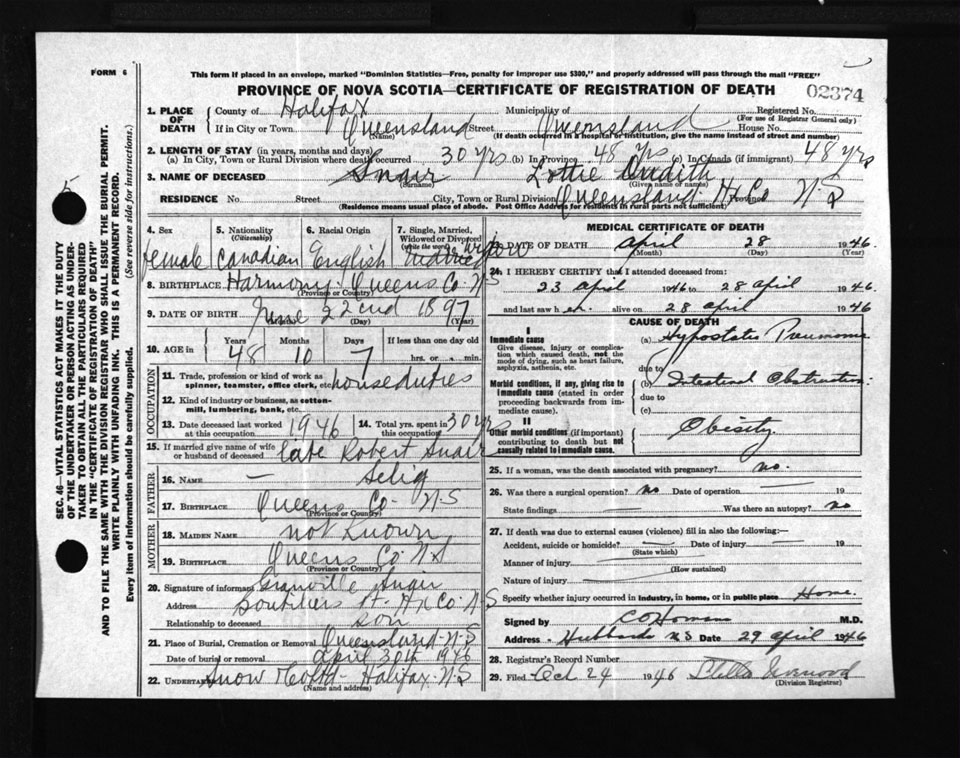 FORM 6
This form if placed in an envelope, marked "Dominion Statistics—Free, penalty for improper use $300," and properly addressed will pass through the mail "FREE"
PROVINCE OF NOVA SCOTIA—CERTIFICATE OF REGISTRATION OF DEATH
02374
1. PLACE OF DEATH
County of Halifax Municipality of Registered No.
(For use of Registrar General only)
If in City or Town Queensland Street Queensland House No.
(Name) (If death occurred in hospital or institution, give the name instead of street and number)
2. LENGTH OF STAY (in years, months and days)
(a) In City, Town or Rural Division where death occurred 30 yrs (b) in Province 48 yrs (c) In Canada (if immigrant) 48 yrs
3. NAME OF DECEASED Snair Lottie
(Surname) (Given name or names)
RESIDENCE No. Street City, Town or Rural Division Queensland Hx Co Province N-S
(Residence means usual place of abode. Post Office Address for residents in rural parts not sufficient)
4. Sex female
5. Nationality (Citizenship) Canadian
6. Racial Origin English
7. Single, Married, Widowed or Divorced widow
8. BIRTHPLACE Harmony Queens Co. N-S
(Province or Country)
9. DATE OF BIRTH June 22nd 1897
(Day) (Year)
10. AGE in Years Months Days If less than one day old
48 10 7 hrs. or min.
OCCUPATION
11. Trade, profession or kind of work as spinner, teamster, office clerk, etc. houseduties
12. Kind of industry or business, as cotton-mill, lumbering, bank, etc.
13. Date deceased last worked at this occupation 1946
14. Total yrs. spent in this occupation 30 yrs
15. If married give name of wife or husband of deceased late Robert Snair
FATHER
16. Name — Selig
17. Birthplace Queens Co- N-S
(Province or Country)
MOTHER
18. Maiden Name not known
19. Birthplace Queens Co. N.S
(Province or Country)
20. Signature of informant Granville Snair
Address Hx Co. N-S
Relationship to deceased son
21. Place of Burial, Cremation or Removal Queensland-N-S
Date of burial or removal april 30th 1946
22. Undertaker Snow Halifax-N-S
(Name and address)
MEDICAL CERTIFICATE OF DEATH
DATE OF DEATH April 28 1946
(Month) (Day) (Year)
24. I HEREBY CERTIFY that I attended deceased from:
23 April 1946 to 28 April 1946.
and last saw h er alive on 28 April 1946
CAUSE OF DEATH
I
Immediate cause
Give disease, injury or complication which caused death, not the mode of dying, such as heart failure, asphyxia, asthenia, etc.
(a) Hypostatic Pneumonia
due to
Morbid conditions, if any, giving rise to immediate cause (stated in order proceeding backwards from immediate cause).
(b) Intestinal Obstruction
due to
(c)
II
Other morbid conditions (if important) contributing to death but not causally related to immediate cause.
Obesity
25. If a woman, was the death associated with pregnancy? no.
26. Was there a surgical operation? no Date of operation 19
State findings Was there an autopsy? no
27. If death was due to external causes (violence) fill in also the following:—
Accident, suicide or homicide? Date of injury 19
(State which)
Manner of injury
(How sustained)
Nature of injury
Specify whether injury occurred in industry, in home, or in public place Home.
Signed by M.D.
Address Hubbards N S Date 29 April 1946
28. Registrar's Record Number
29. Filed Oct 24 1946 Stella
(Division Registrar)
SEC. 46—VITAL STATISTICS ACT MAKES IT THE DUTY OF THE UNDERTAKER OR PERSON ACTING AS UNDERTAKER TO OBTAIN ALL THE PARTICULARS REQUIRED IN THE "CERTIFICATE OF REGISTRATION OF DEATH" AND TO FILE THE SAME WITH THE DIVISION REGISTRAR WHO SHALL ISSUE THE BURIAL PERMIT.
WRITE PLAINLY WITH UNFADING INK. THIS IS A PERMANENT RECORD.
Every item of information should be carefully supplied. (See reverse side for instructions.)